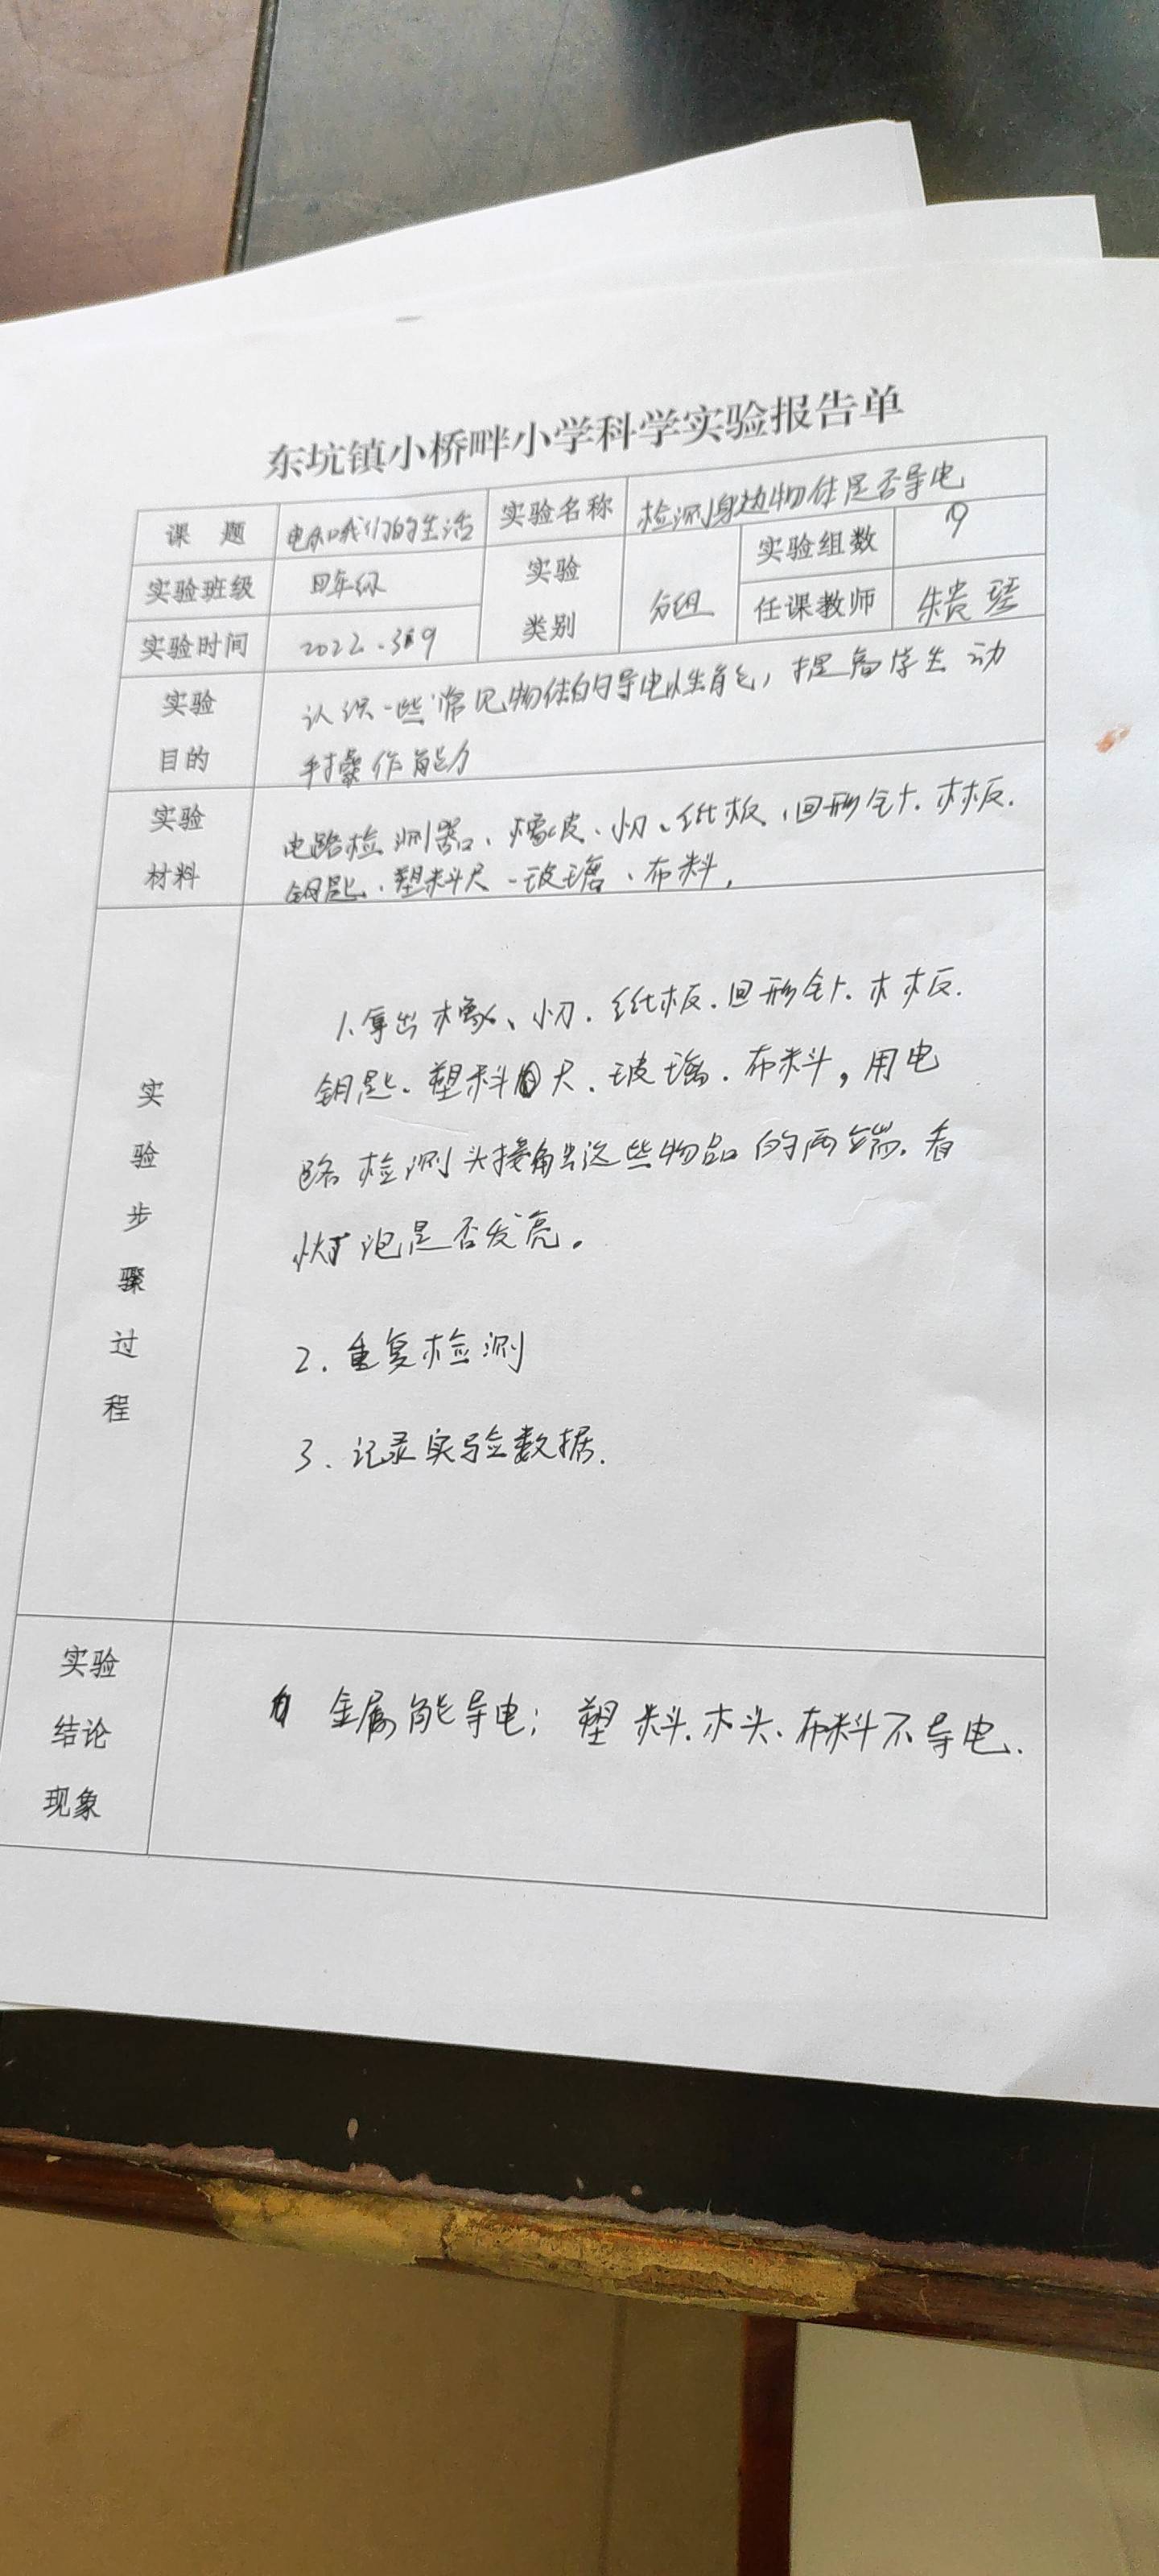 东坑镇小桥畔小学科学实验报告单
课 题 电和我们的生活 实验名称 检测身边物体是否导电
实验班级 四年级 实验类别 分组 实验组数
实验时间 2022.3.9 任课教师 朱贵琴
实验目的 认识一些常见物体的导电性能，提高学生动
手操作能力
实验材料 电路检测器、橡皮、小刀、纸板、回形针、木板、
钥匙、塑料尺、玻璃、布料，
实验步骤过程
1、拿出橡、小刀、纸板、回形针、木板、
钥匙、塑料尺、玻璃、布料，用电
路检测头接触这些物品的两端，看
灯泡是否发亮。
2、重复检测
3、记录实验数据.
实验结论现象 金属能导电；塑料、木头、布料不导电.